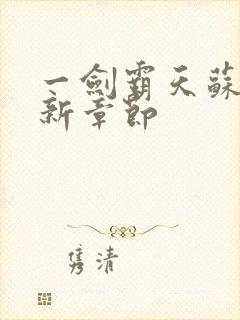 一劍霸天蘇
新章節
隽清